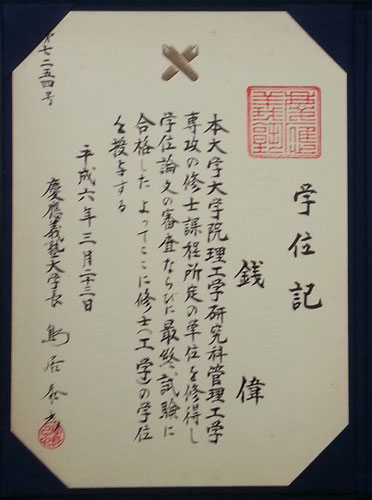 学位記
銭偉
本大学大学院理工学研究科管理工学
専攻の修士課程所定の単位を修得し
学位論文の審査ならびに最終試験に
合格した よってここに修士(工学)の学位
を授与する
平成六年三月二十三日
慶應義塾大学長 鳥居泰彦
第七二五四号